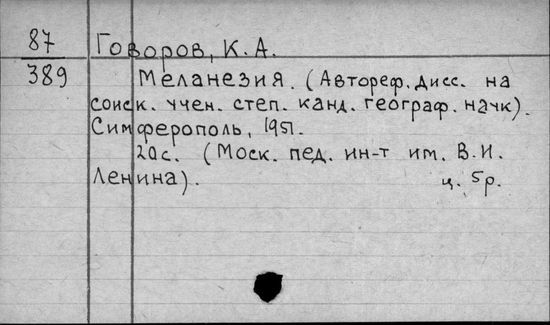 87 Говоров, К. А.
389 Меланезия. (Автореф. дисс. на
соиск. учен. степ. канд. географ. наук).
Симферополь, 1951.
20с. (Моск. пед. ин-т им. В.И.
Ленина). ц. 5р.